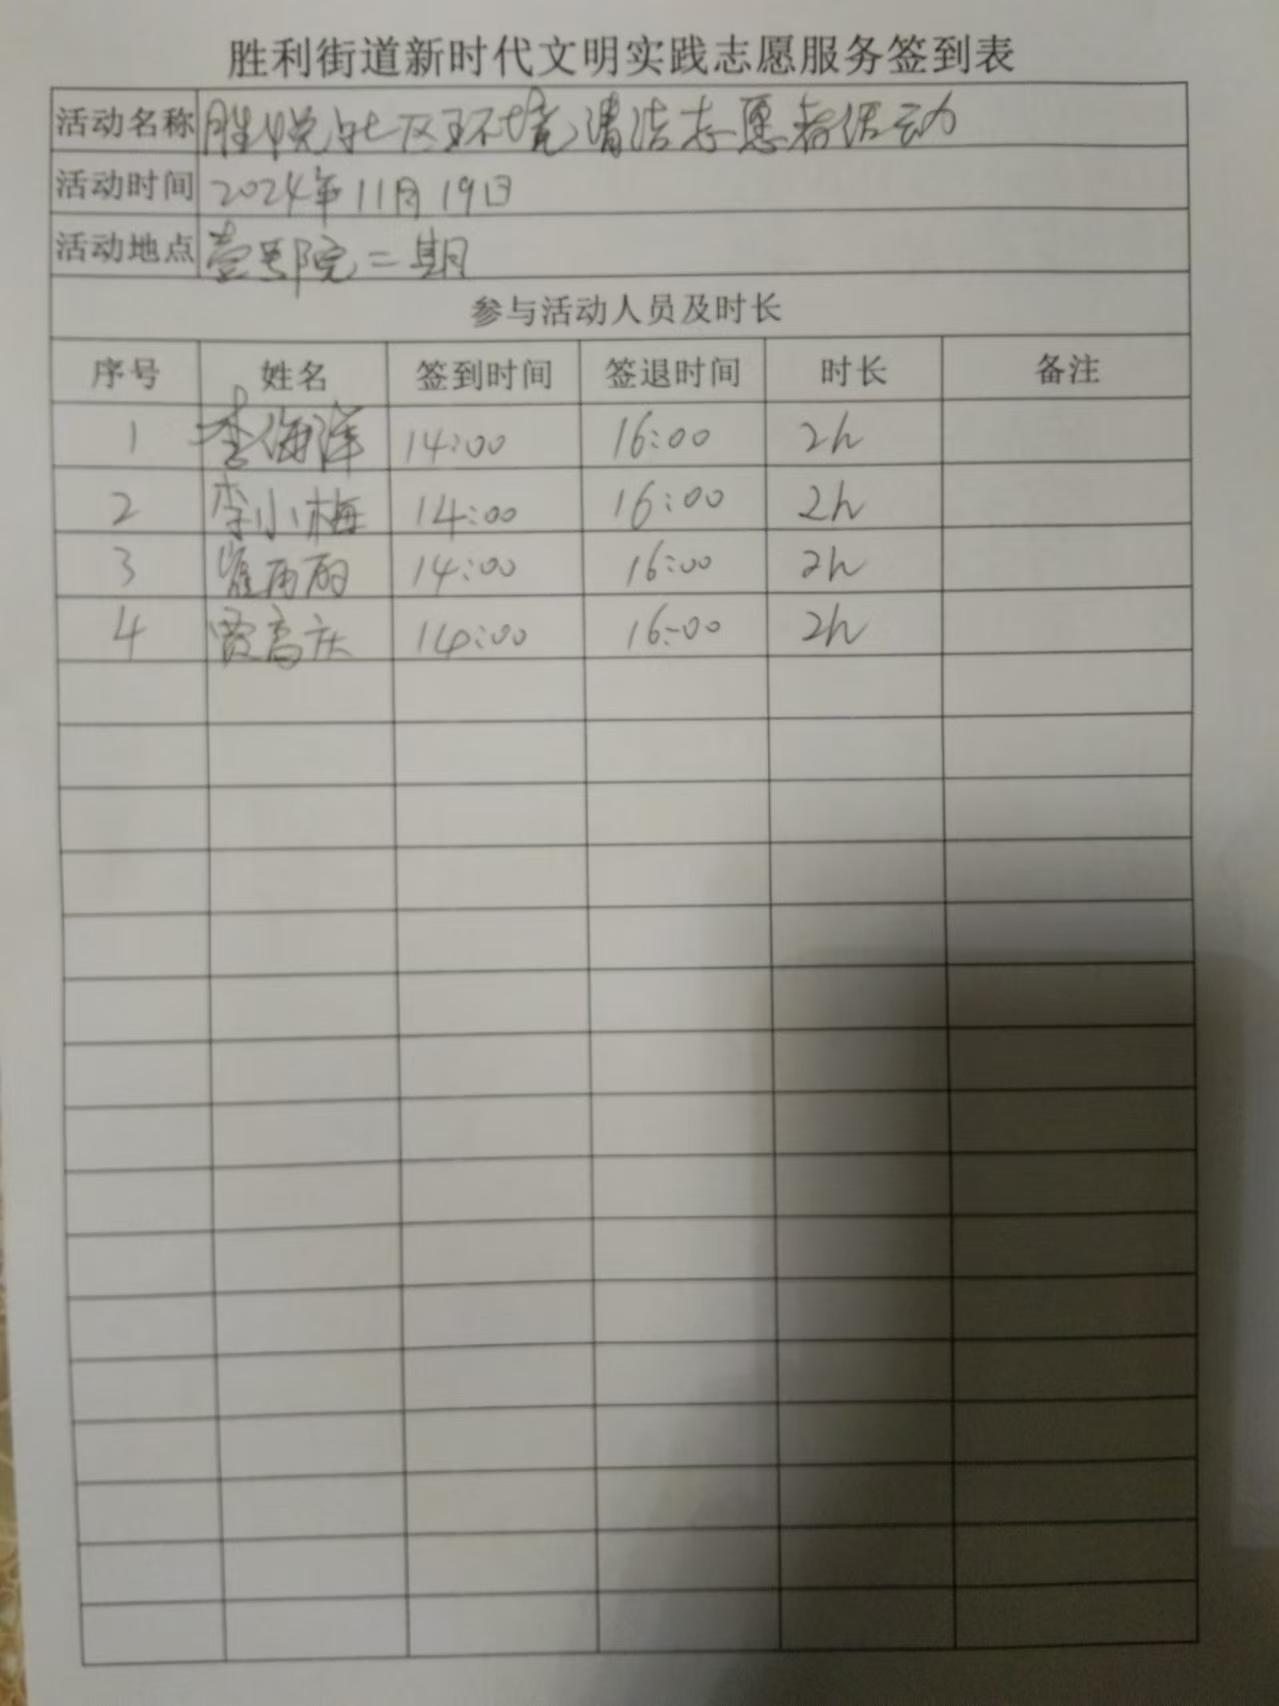 胜利街道新时代文明实践志愿服务签到表
活动名称 胜悦社区环境清洁志愿者活动
活动时间 2024年11月19日
活动地点 壹号院二期
参与活动人员及时长
序号 姓名 签到时间 签退时间 时长 备注
1 李海洋 14:00 16:00 2h
2 李小梅 14:00 16:00 2h
3 14:00 16:00 2h
4 贾高庆 14:00 16:00 2h